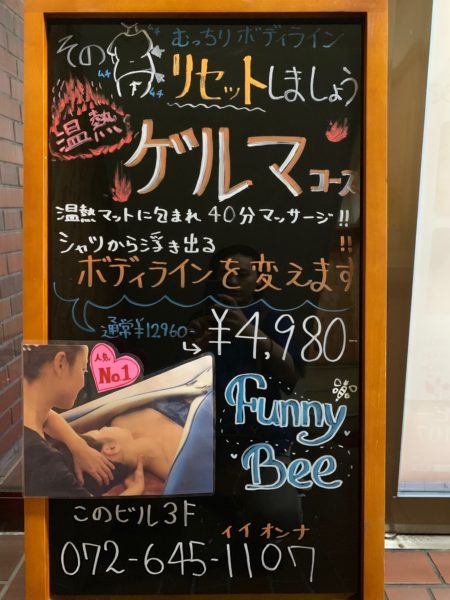 その むっちりボディライン
ムチ ムチ
ムチ
リセットしましょう
温熱
ゲルマ コース
温熱マットに包まれ 40分マッサージ!!
シャツから浮き出る !!
ボディラインを変えます
通常¥12960-
¥4,980-
人気
No.1
Funny
Bee
このビル3F
イイオンナ
072-645-1107